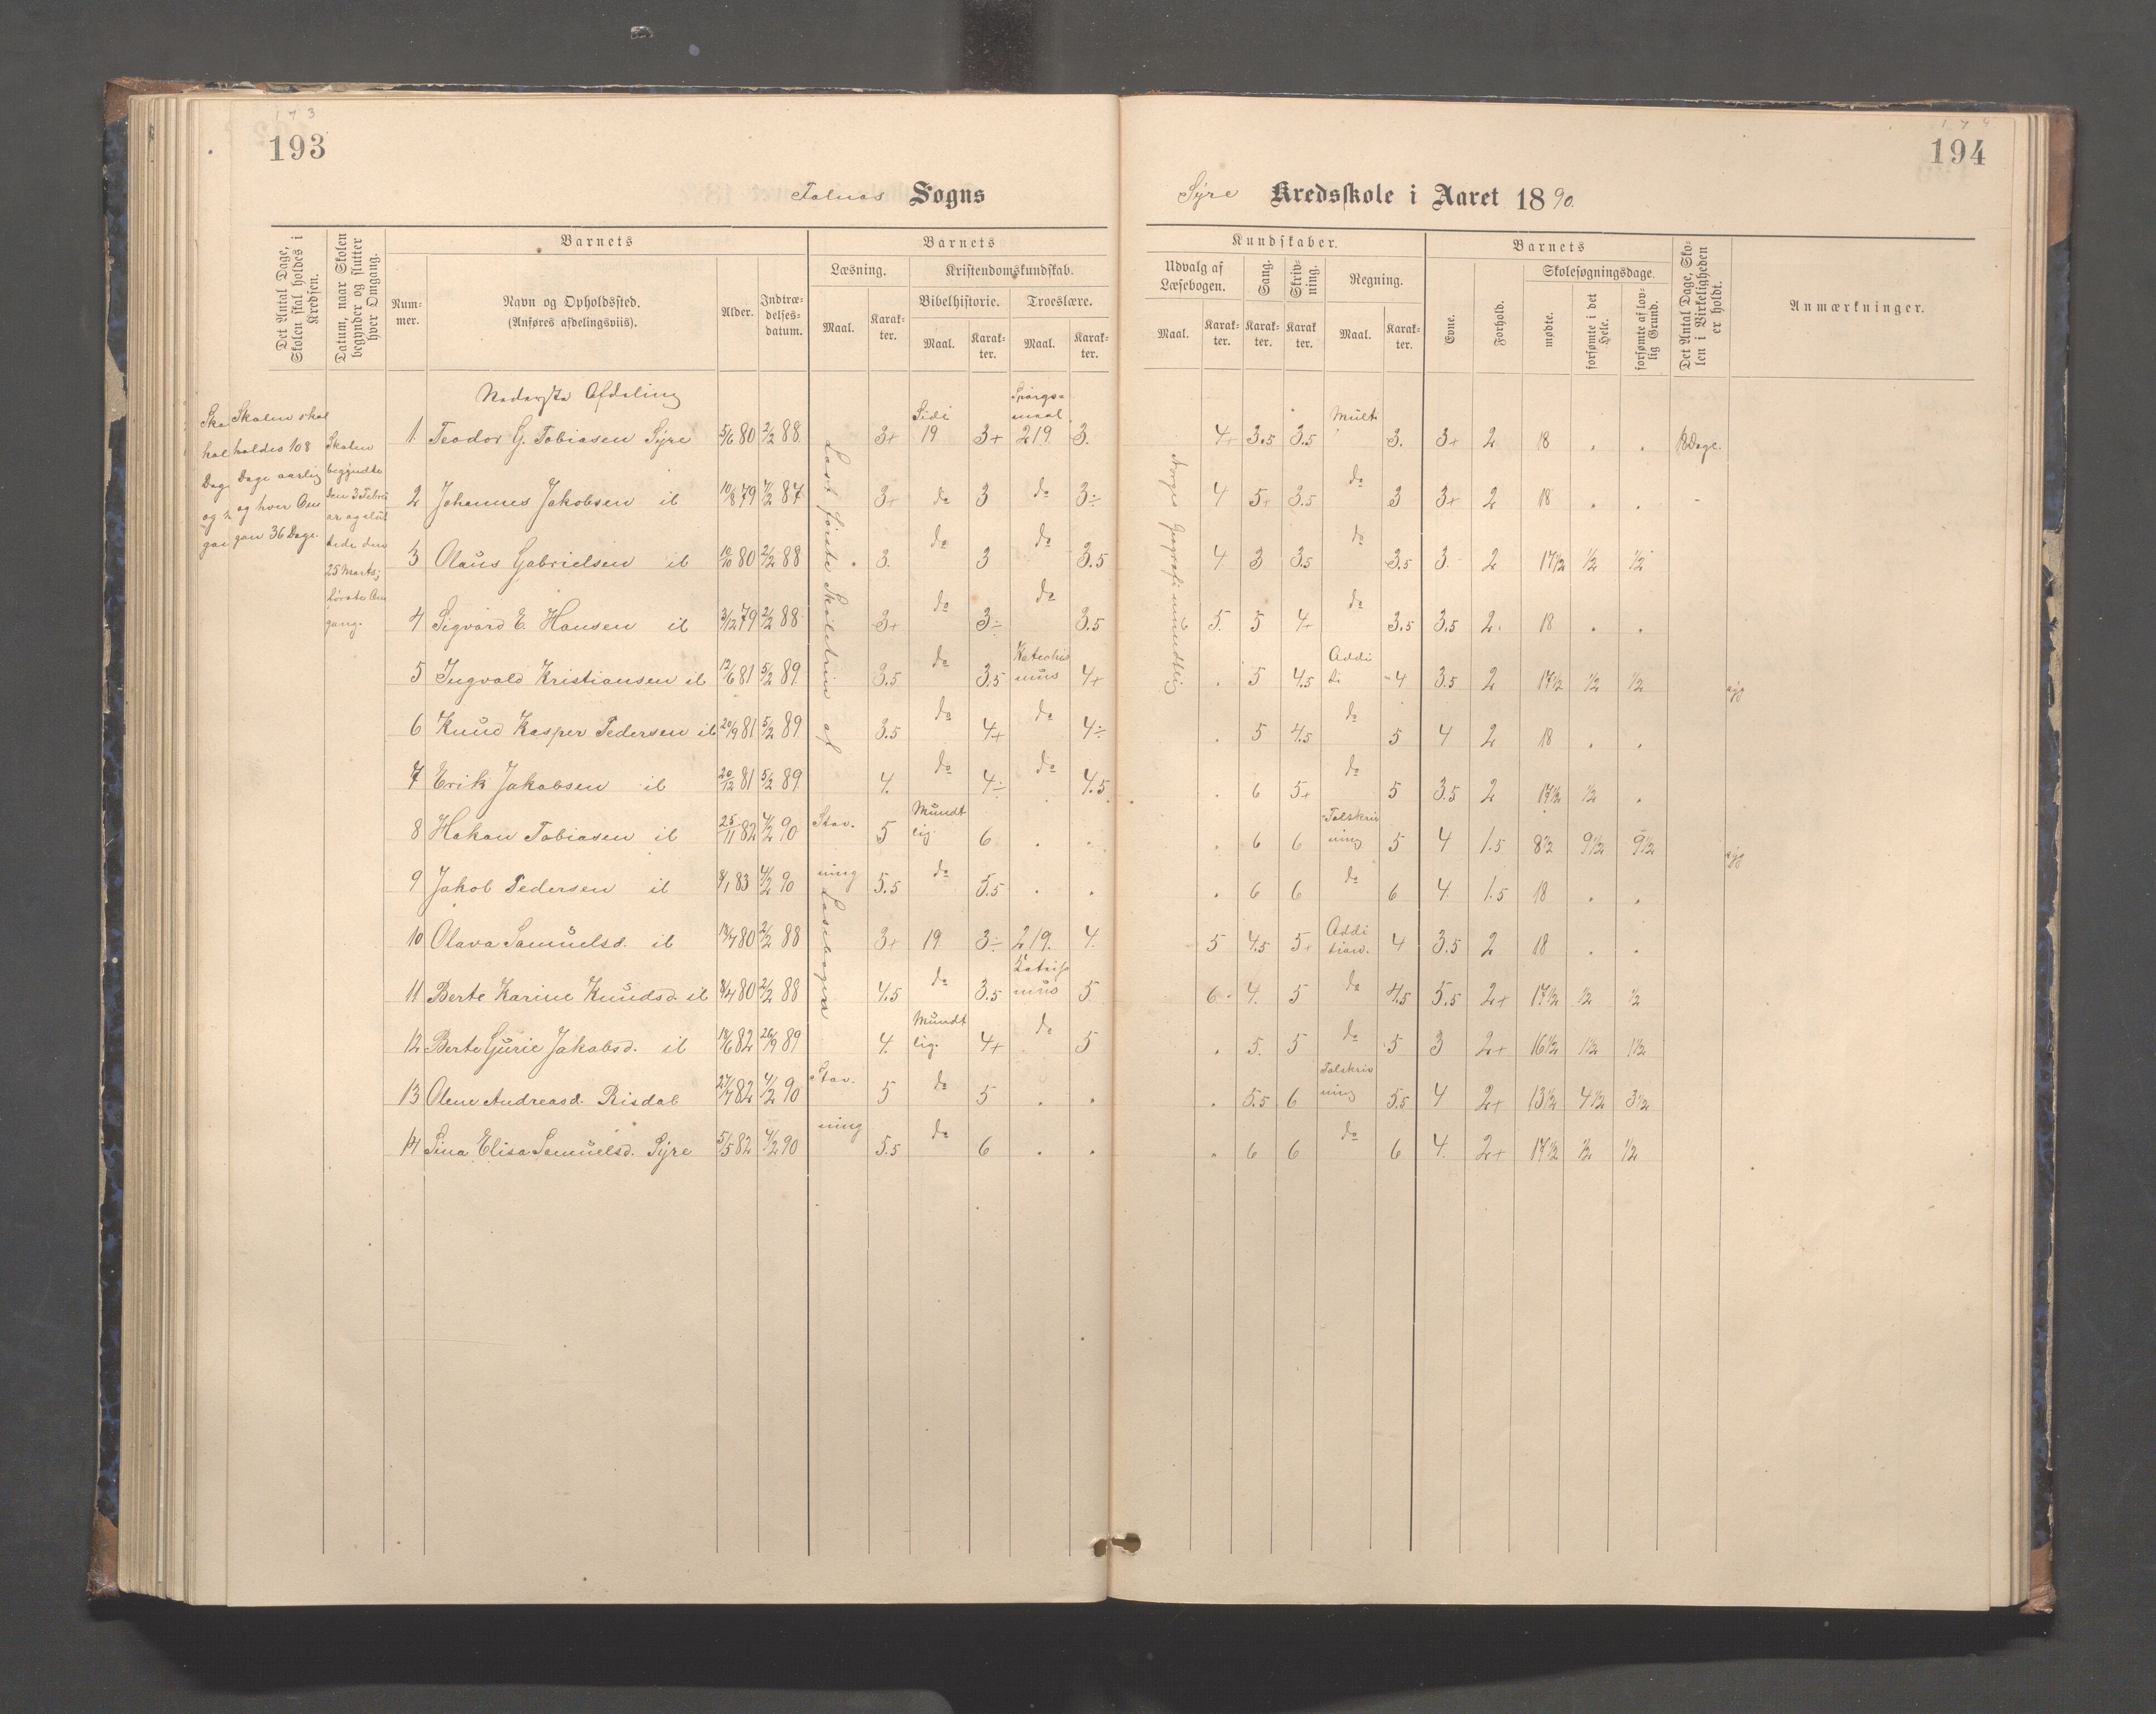 173
193
Falnes Sogns
Det Antal Dage, Skolen skal holdes i Kredsen.
Datum, naar Skolen begynder og slutter hver Omgang.
Barnets
Num-mer.
Navn og Opholdssted.
(Anføres afdelingsviis).
Alder.
Indtræ-delses-datum.
Barnets
Læsning.
Kristendomskundskab.
Bibelhistorie.
Troeslære.
Maal.
Karak-ter.
Maal.
Karak-ter.
Maal.
Karak-ter.
Skolen skal
holdes 108
Dage aarlig
og hver Om
gan 36 Dage.
Skolen
begyndte
den 3 Febru
ar og slut
tede den
25 Marts;
første Om
gang.
Læst første Skoletrin af Læsebogen
Nederste Afdeling
1. Teodor G. Tobiasen Syre 5/6 80 2/2 88 3+ Side 19 3+ Spørgs=maal 219. 3.
2 Johannes Jakobsen ib 10/8 79 7/2 87 3+ do 3 do 3÷
3 Olaus Gabrielsen ib 10/10 80 2/2 88 3. do 3 do 3.5
4 Sigvard E. Hansen ib 3/12 79 2/2 88 3+ do 3÷ do 3.5
5 Ingvald Kristiansen ib 12/6 81 5/2 89 3.5 do 3.5 Katechis mus 4+
6 Knud Kasper Pedersen ib 20/9 81 5/2 89 3.5 do 4+ do 4÷
7 Erik Jakobsen ib 20/12 81 5/2 89 4. do 4÷ do 4.5
8 Hakon Tobiasen ib 25/11 82 4/2 90 Stav. 5 Mundt lig. 6 . .
9 Jakob Pedersen ib 8/1 83 4/2 90 ning 5.5 do 5.5 . .
10 Olava Samuelsd. ib 19/7 80 2/2 88 3+ 19. 3÷ 219. 4.
11 Berte Karine Knudsd. ib 8/4 80 2/2 88 4.5 do 3.5 5
12 Berte Gurie Jakobsd. ib 14/6 82 26/9 89 4. Mundt lig. 4+ do 5
13 Olene Andreasd. Risdal 27/7 82 4/2 90 Stav. 5 do 5 . .
14 Sina Elisa Samuelsd. Syre 5/5 82 4/2 90 ning 5.5 do 6 . .
174
194
Syre Kredsskole i Aaret 1890.
Kundskaber.
Udvalg af Læsebogen.
Sang.
Skriv-ning.
Regning.
Maal.
Karak-ter.
Karak-ter.
Karak ter.
Maal.
Karak-ter.
Barnets
Evne.
Forhold.
Skolesøgningsdage.
mødte.
forsømte i det Hele.
forsømte af lov-lig Grund.
Det Antal Dage, Sko-len i Virkeligheden er holdt.
Anmærkninger.
Norges Geografi mundtlig
4+ 3.5 3.5 Mult. 3. 3+ 2 18 . . 18 Dage.
4 5+ 3.5 do 3 3+ 2 18 . .
4 3 3.5 do 3.5 3 2 17½ ½ ½
5. 5 4+ do 3.5 3.5 2. 18 . .
. 5 4.5 Addi ti 4 3.5 2 17½ ½ ½ syg
. 5 4.5 do 5 4 2 18 . .
. 6 5+ do 5 3.5 2 17½ ½ .
. 6 6 Talskriv ning 5 4 1.5 8½ 9½ 9½ syg
. 6 6 do 6 4. 1.5 18 . .
5 4.5 5+ Addi tion. 4 3.5 2 18 . .
6 4. 5 do 4.5 5.5 2+ 17½ ½ ½
. 5. 5 do 5 3 2+ 16½ 1½ 1½
. 5.5 6 Talskriv ning 5.5 4 2+ 13½ 4½ 3½
. 6 6 do 6 4. 2+ 17½ ½ ½